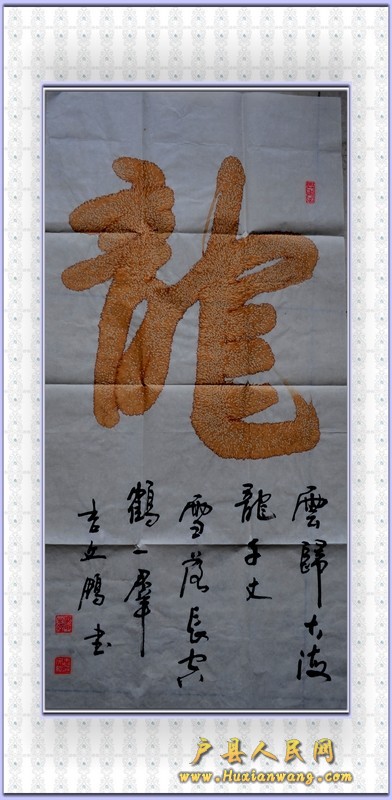 龍
雲歸大海
龍千丈
雪落長空
鶴一羣
書
户县人民网
www.Huxianwang.com